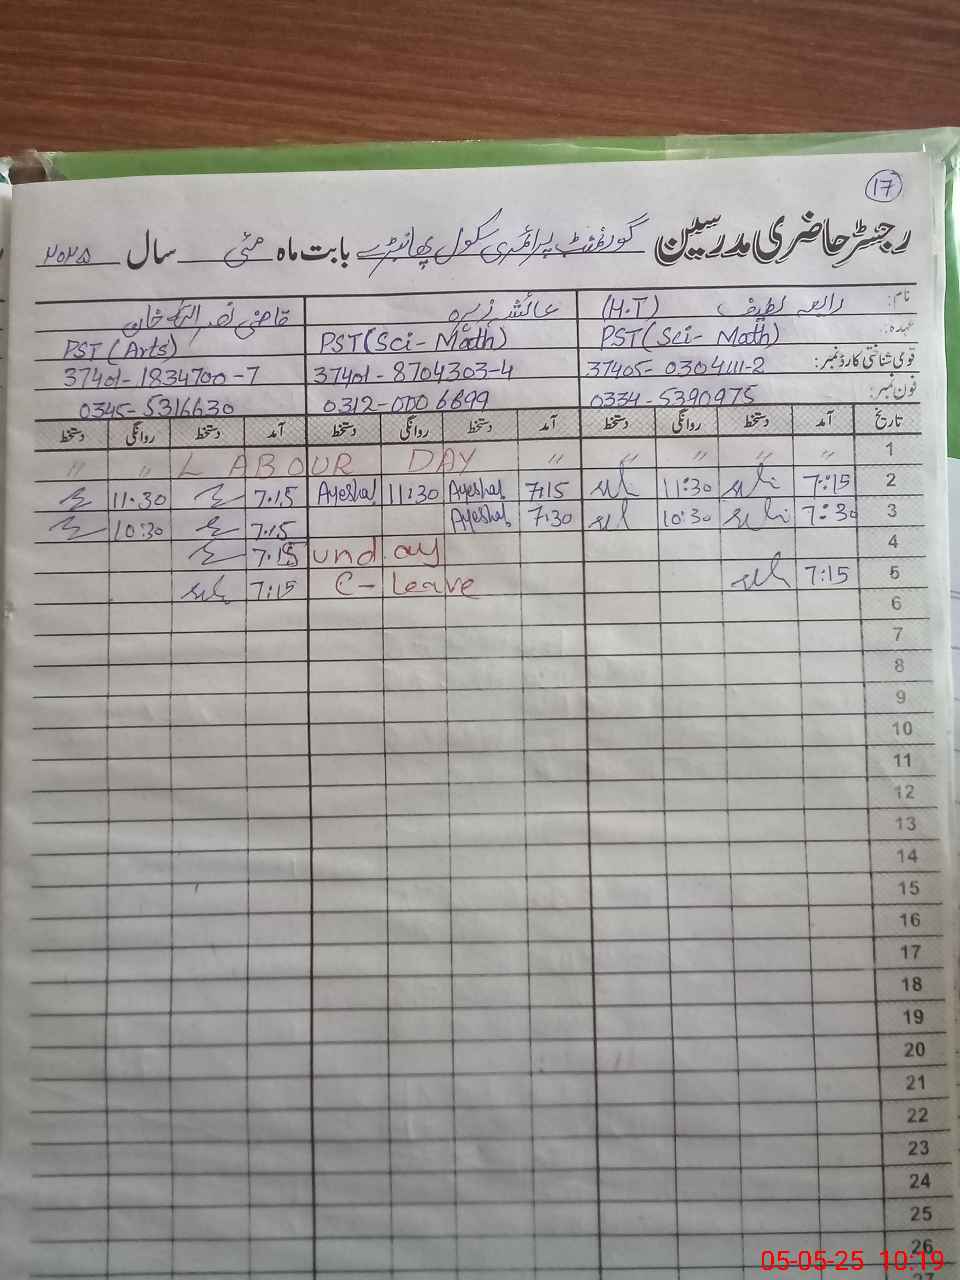 17
رجسٹر حاضری مدرسین گورنمنٹ پرائمری سکول بابت ماہ مئی سال ۲۰۲۵
نام: رابعہ لطیف (H.T) عائشہ زہرہ قاضی خان
عہدہ: PST (Sci- Math) PST (Sci- Math) PST (Arts)
قومی شناختی کارڈ نمبر: 37405-0304111-2 37401-8704303-4 37401-1834700-7
فون نمبر: 0334-5390975 0312-0006899 0345-5316630
تاریخ آمد دستخط روانگی دستخط آمد دستخط روانگی دستخط آمد دستخط روانگی دستخط
1 " " " " " LABOUR DAY " "
2 7:15 11:30 7:15 Ayesha 11:30 Ayesha 7:15 11:30
3 7:30 10:30 7:30 Ayesha 7:15 10:30
4 Sunday 7:15
5 7:15 C-Leave 7:15
6
7
8
9
10
11
12
13
14
15
16
17
18
19
20
21
22
23
24
25
26
27
05-05-25 10:19